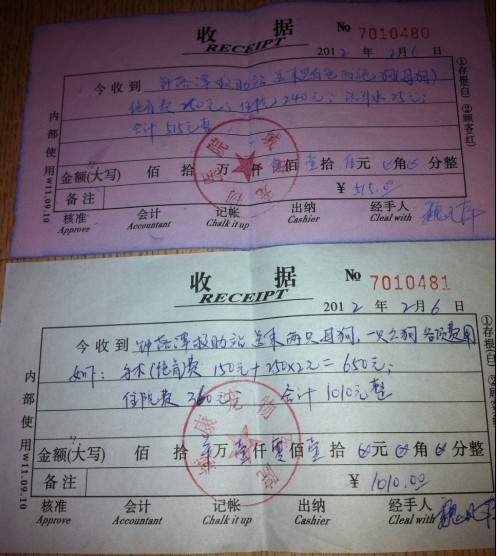 收 据 No 7010480
RECEIPT
2012 年 2月6日
今收到 钟燕萍救助站
绝育费 250元; 住院 240元; 25元;
合计 515元整
金额(大写) 佰 拾 万 仟 佰 壹拾 伍元 角 分整
备注 ¥ 515.00
核准 会计 记帐 出纳 经手人
Approve Accountant Chalk it up Cashier Cleal with
内部使用W11.09.10
①存根(白) ②顾客(红)
收 据 No 7010481
RECEIPT
2012 年 2月6日
今收到 钟燕萍救助站 两只母狗, 一只公狗 各项费用
如下: 手术(绝育)费 150元+250×2元=650元;
住院费 360元 合计 1010元整
金额(大写) 佰 拾 万 壹仟 零佰 壹拾 元 角 分整
备注 ¥ 1010.00
核准 会计 记帐 出纳 经手人
Approve Accountant Chalk it up Cashier Cleal with
内部使用W11.09.10
①存根(白) ②顾客